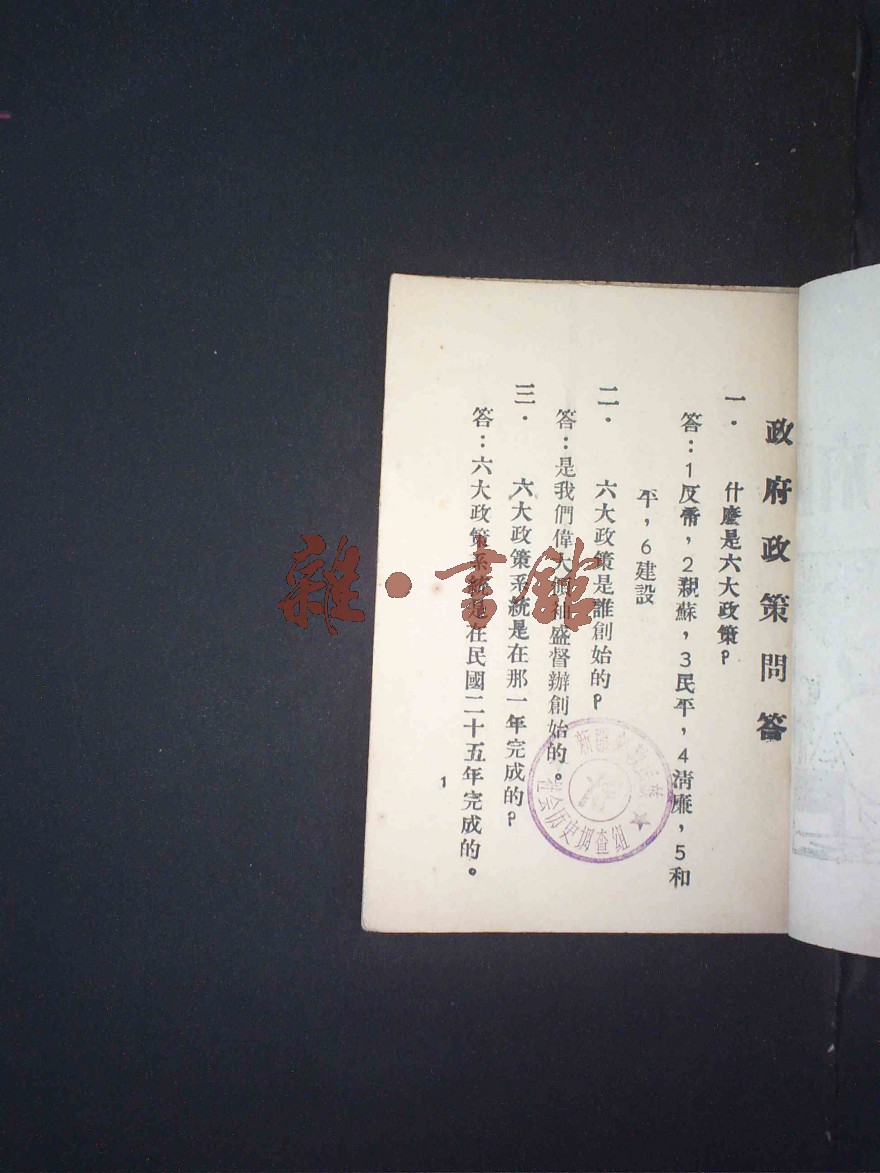 政府政策問答
一．　什麼是六大政策？
答：1反帝，2親蘇，3民平，4清廉，5和
平，6建設
二．　六大政策是誰創始的？
答：是我們偉大領袖盛督辦創始的。
三．　六大政策系統是在那一年完成的？
答：六大政策系統是在民國二十五年完成的。
1
雜·書館
新疆少数民族
社会历史调查组